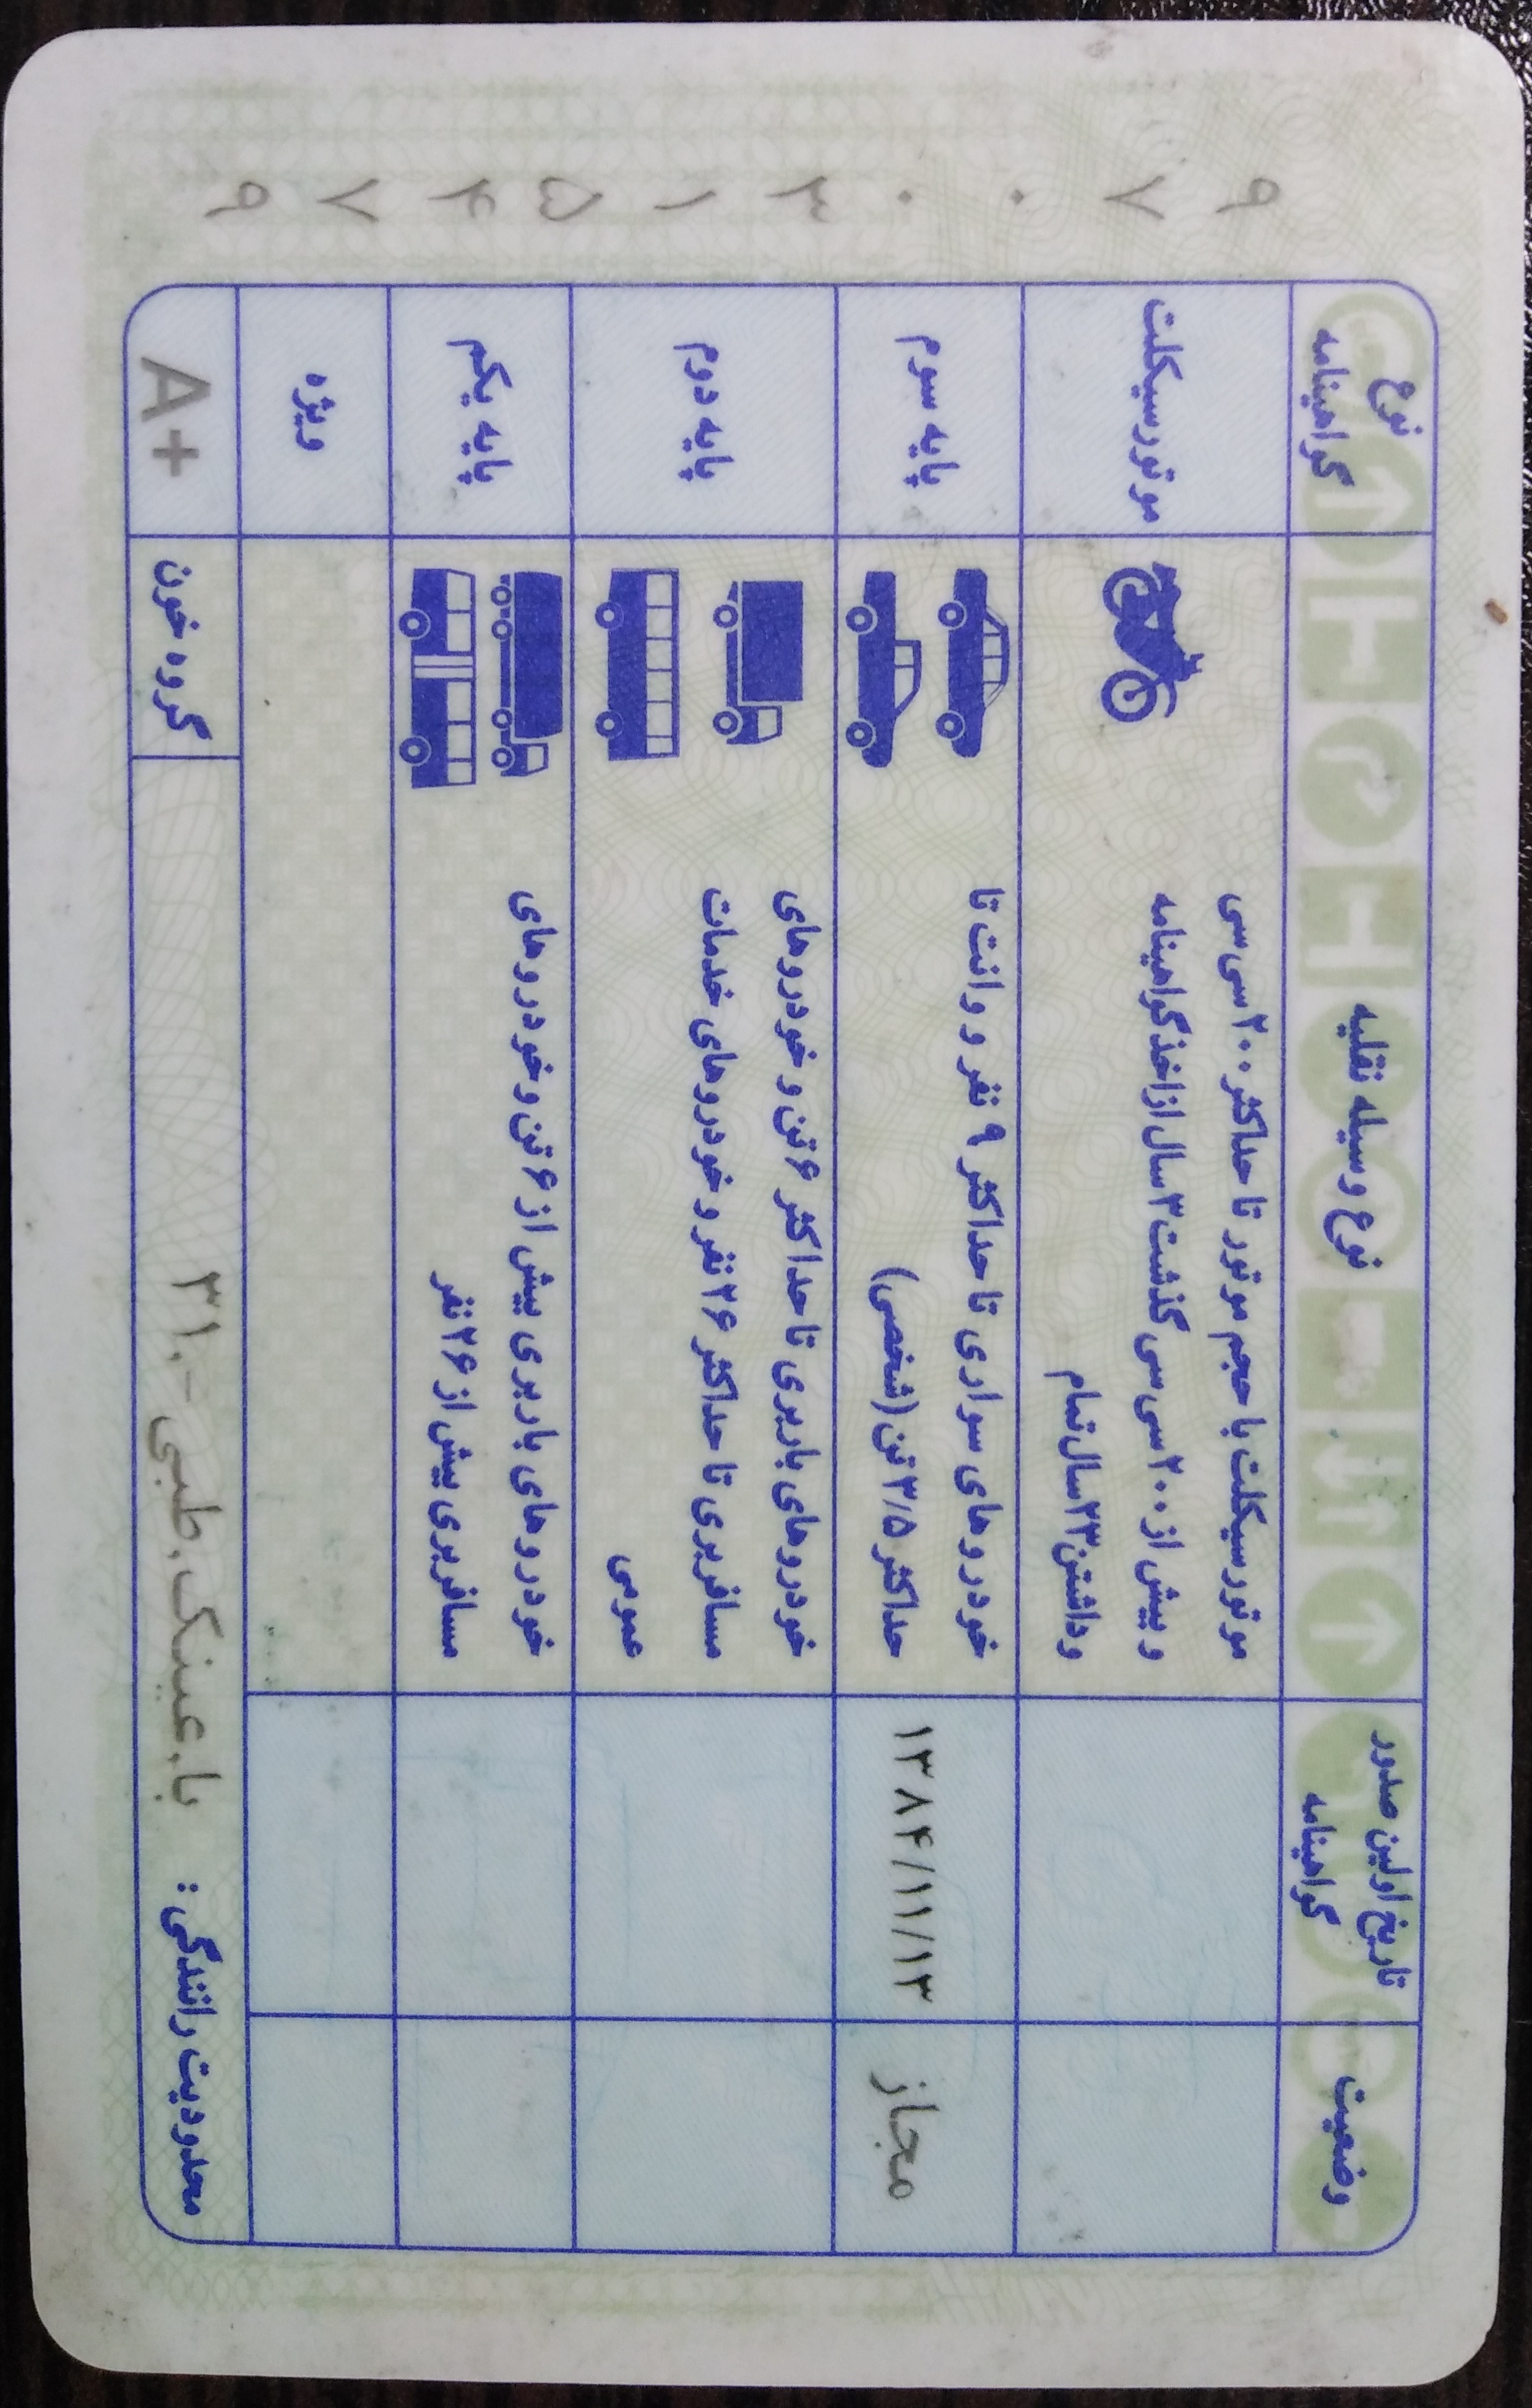 وضعیت
تاریخ اولین صدور
گواهینامه
نوع وسیله نقلیه
نوع
گواهینامه
موتورسیکلت با حجم موتور تا حداکثر ۲۰۰ سی سی
و بیش از ۲۰۰ سی سی گذشت ۳ سال از اخذ گواهینامه
و داشتن ۲۳ سال تمام
موتورسیکلت
مجاز
۱۳۸۴/۱۱/۱۳
خودروهای سواری تا حداکثر ۹ نفر و وانت تا
حداکثر ۳/۵ تن (شخصی)
پایه سوم
خودروهای باربری تا حداکثر ۶ تن و خودروهای
مسافربری تا حداکثر ۲۶ نفر و خودروهای خدمات
عمومی
پایه دوم
خودروهای باربری بیش از ۶ تن و خودروهای
مسافربری بیش از ۲۶ نفر
پایه یکم
ویژه
محدودیت رانندگی : با.عینک.طبی-.۳۱
گروه خون
A+
۹
۷
۰
۰
۳
۱
۵
۴
۷
۹